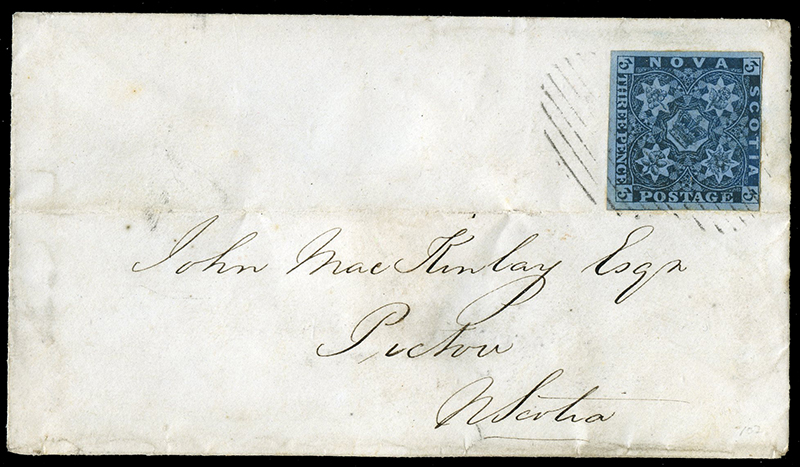 NOVA
SCOTIA
THREE PENCE
POSTAGE
John MacKinlay Esqr
Pictou
N Scotia